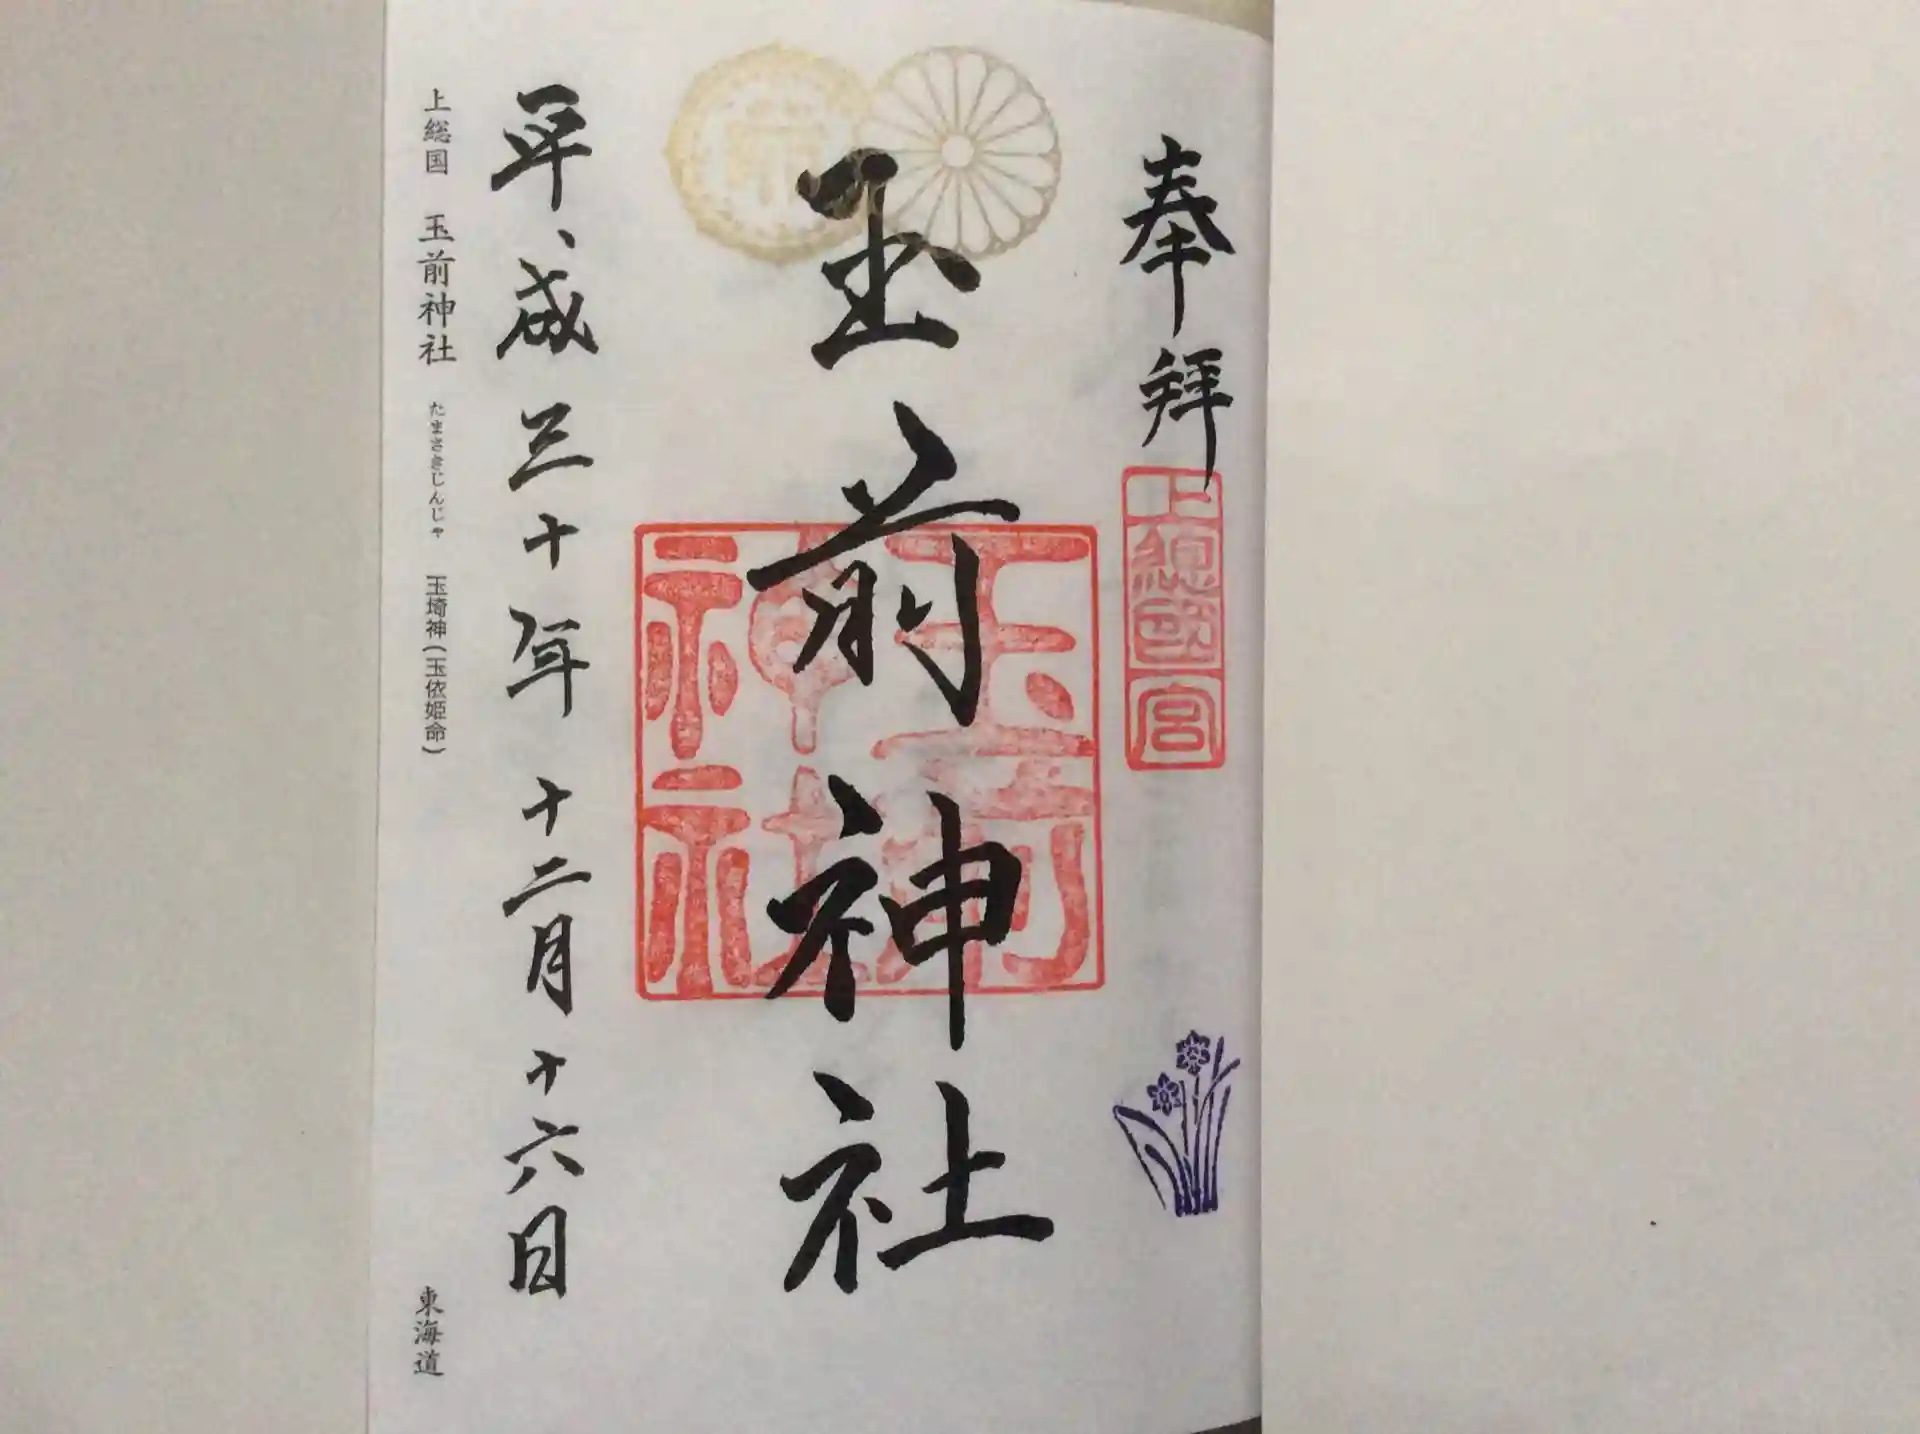 奉拝
上總國一宮
玉前神社
玉前神社
平成三十年十二月十六日
上総国 玉前神社 たまさきじんじゃ 玉埼神(玉依姫命) 東海道